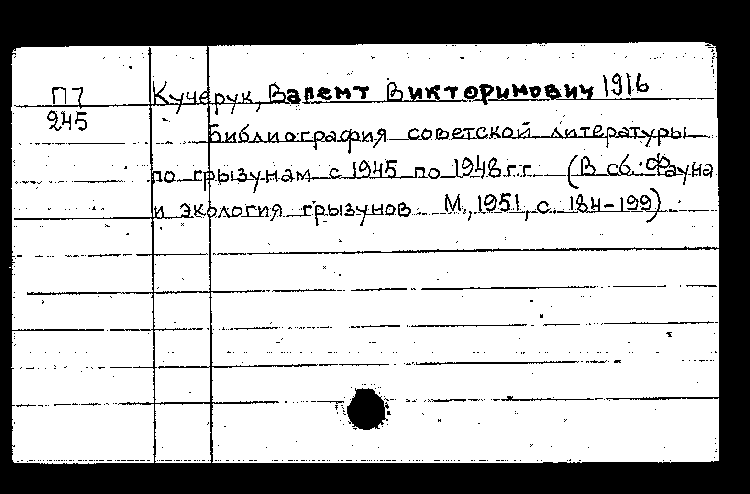 П7 Кучерук, Валент Викторинович 1916
245
Библиография советской литературы
по грызунам с 1945 по 1948 гг. (В сб.: Фауна
и экология грызунов. М., 1951, с. 184-199).